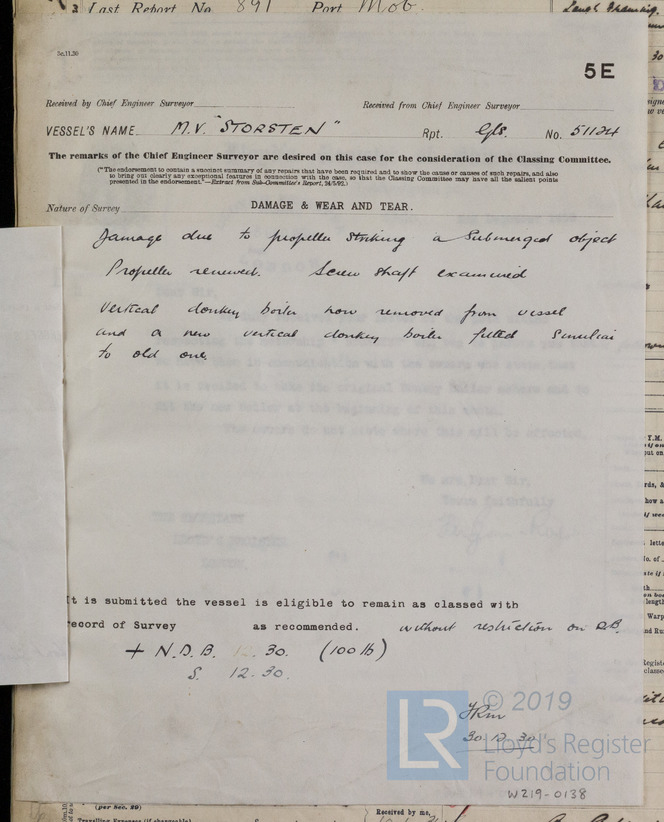 Last Report No. 891 Port Mob.
5c.11.30
5E
Received by Chief Engineer Surveyor
Received from Chief Engineer Surveyor
VESSEL'S NAME M.V. "STORSTEN" Rpt. Gls. No. 51124
The remarks of the Chief Engineer Surveyor are desired on this case for the consideration of the Classing Committee.
("The endorsement to contain a succinct summary of any repairs that have been required and to show the cause or causes of such repairs, and also
to bring out clearly any exceptional features in connection with the case, so that the Classing Committee may have all the salient points
presented in the endorsement."—Extract from Sub-Committee's Report, 24/5/92.)
Nature of Survey DAMAGE & WEAR AND TEAR.
Damage due to propeller striking a submerged object
Propeller renewed. Screw shaft examined
Vertical donkey boiler now removed from vessel
and a new vertical donkey boiler fitted similar
to old one.
It is submitted the vessel is eligible to remain as classed with
record of Survey as recommended. without restriction on D.B.
+ N.D.B. 12.30. (100 lb)
S. 12.30.
30.12.30
© 2019
LR
Lloyd's Register
Foundation
W219-0138
(per Sec. 29)
Travelling Expenses (if chargeable)
Received by me,